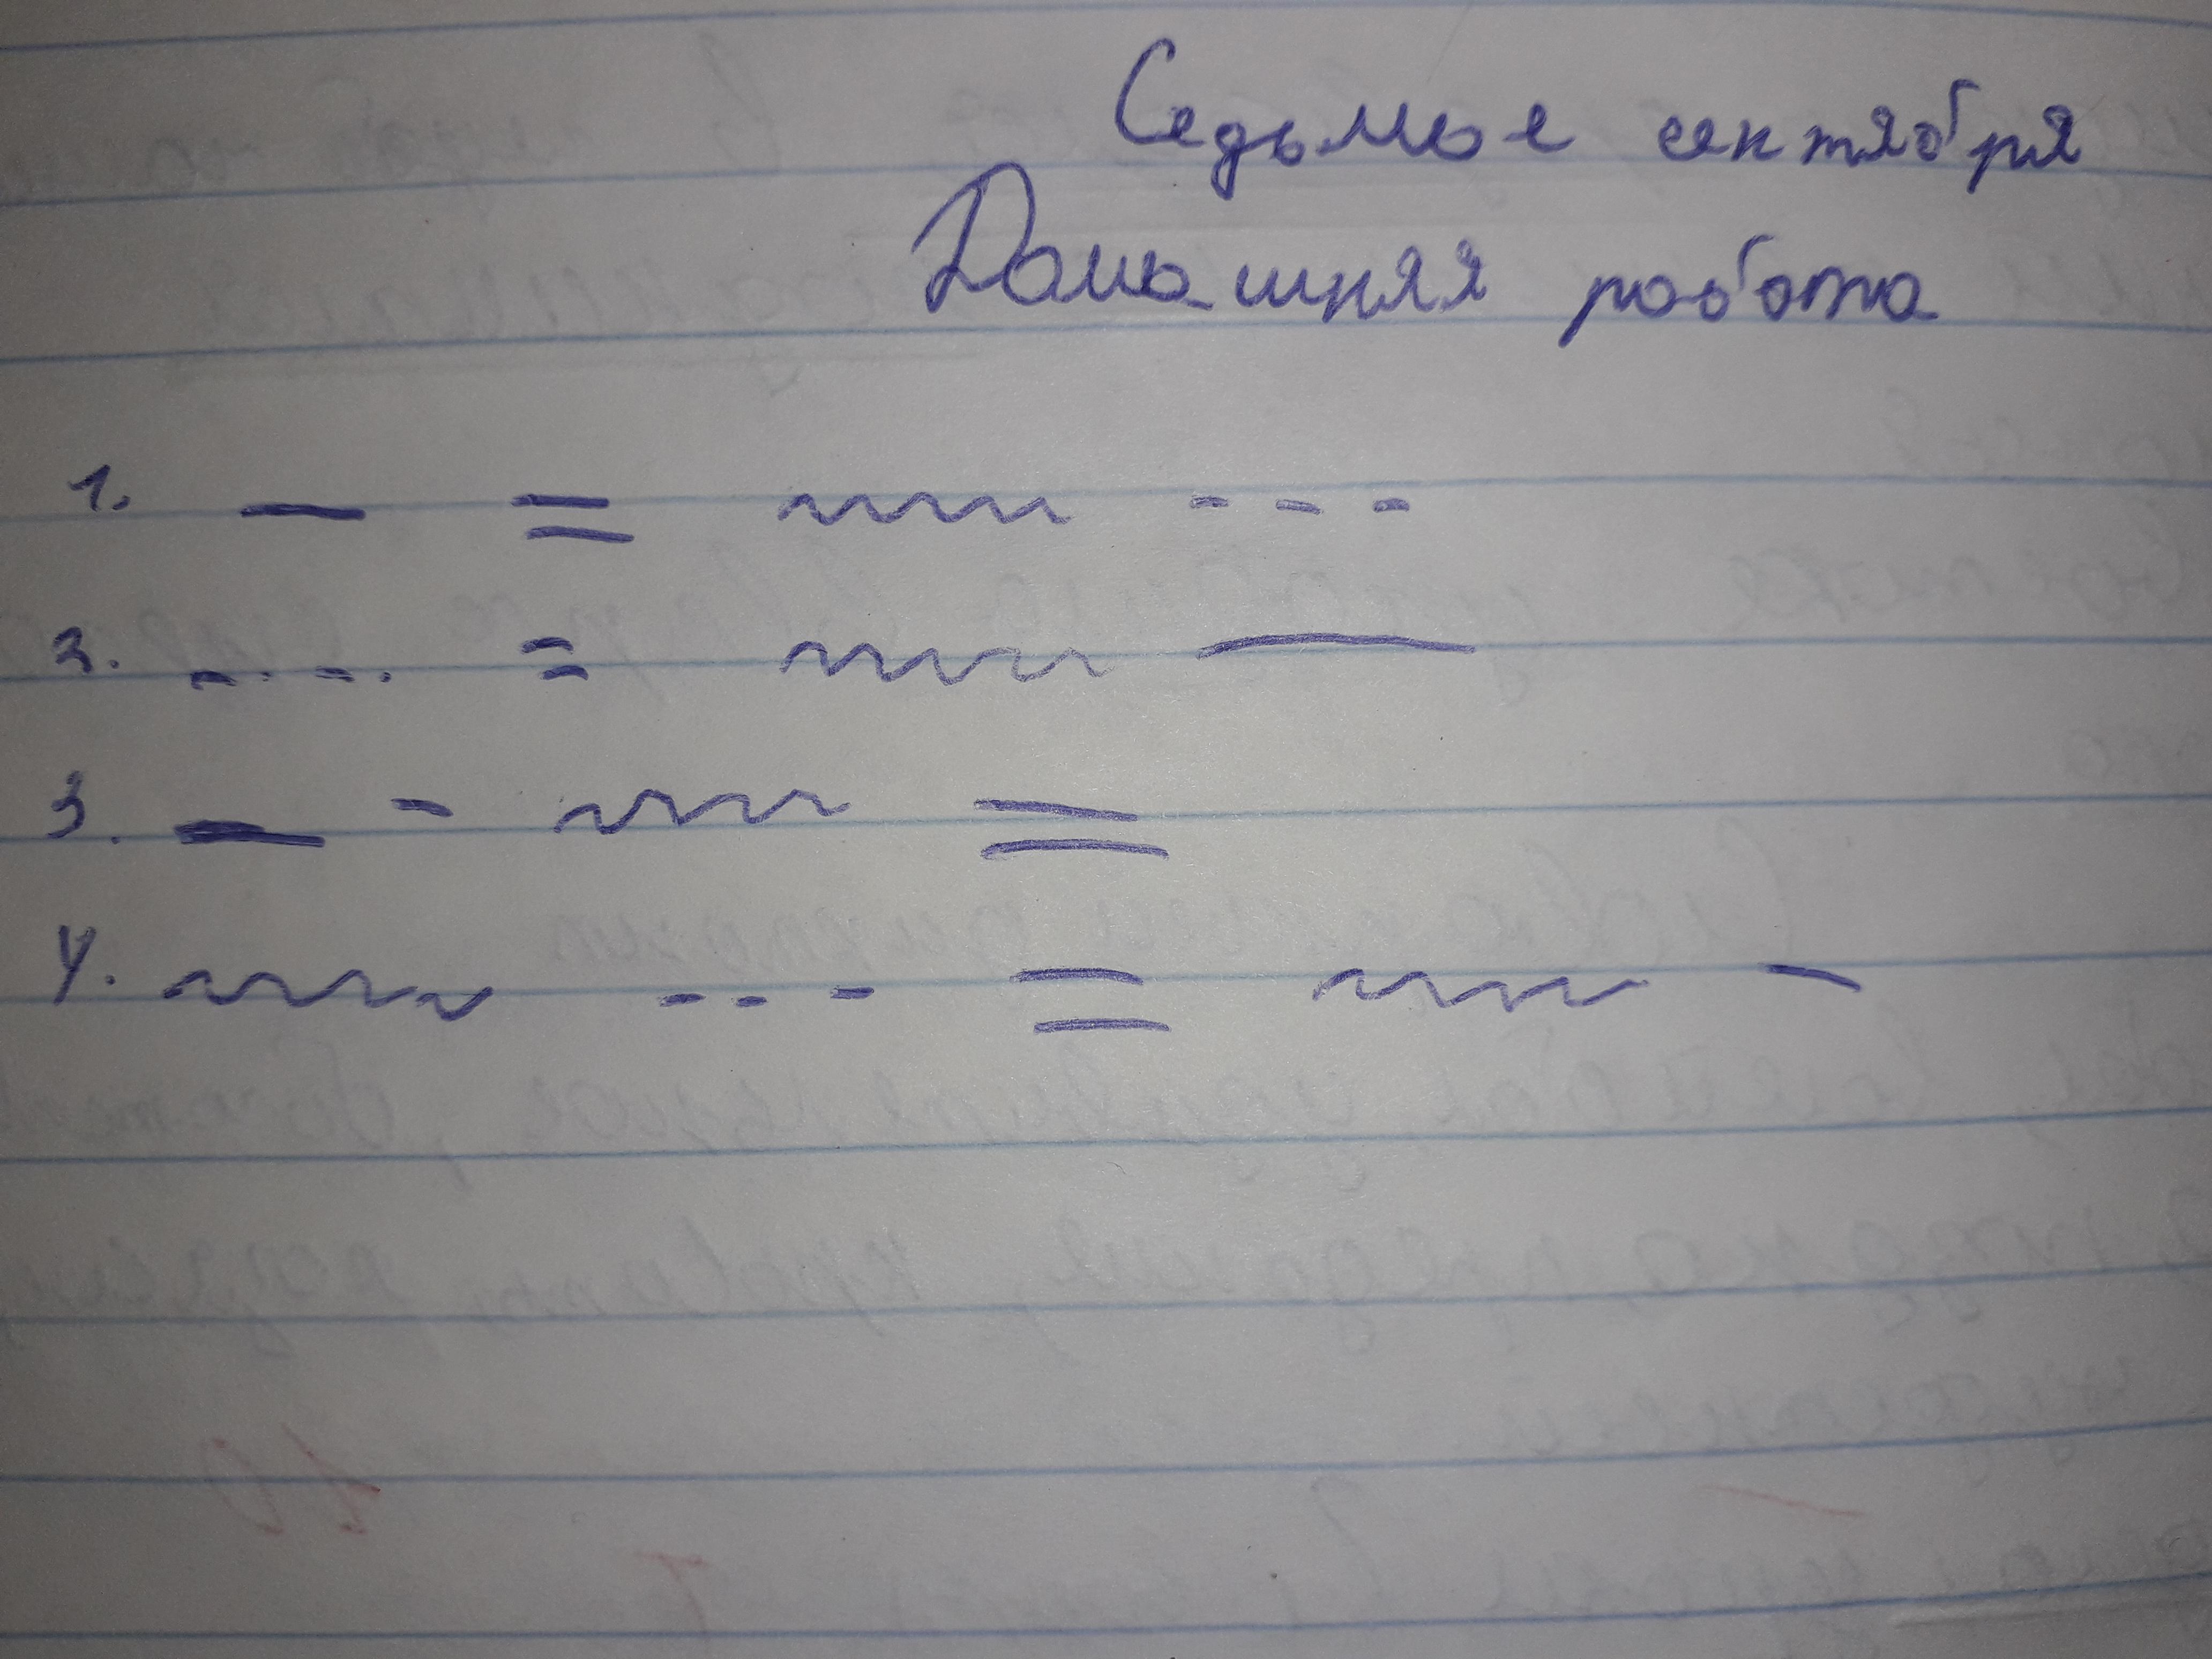 Седьмое сентября
Домашняя работа
1.
2.
3.
4.